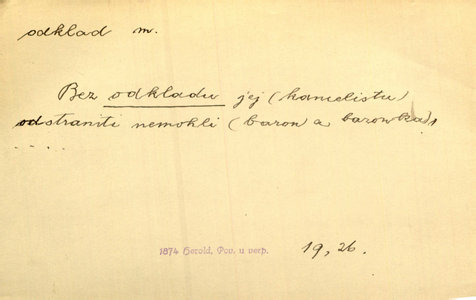 odklad m.
Bez odkladu jej (kancelistu)
odstraniti nemohli (baron a baronka),
.....
1874 Herold, Pov. u verp. 19, 26.